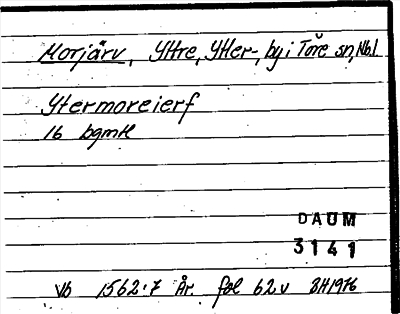 Morjärv, Yttre, Ytter-, by i Töre sn, Nb.l
Ytermoreierf
16 bgmtl
DAUM
3141
Vb 1562:7 År. fol 62v BH1976